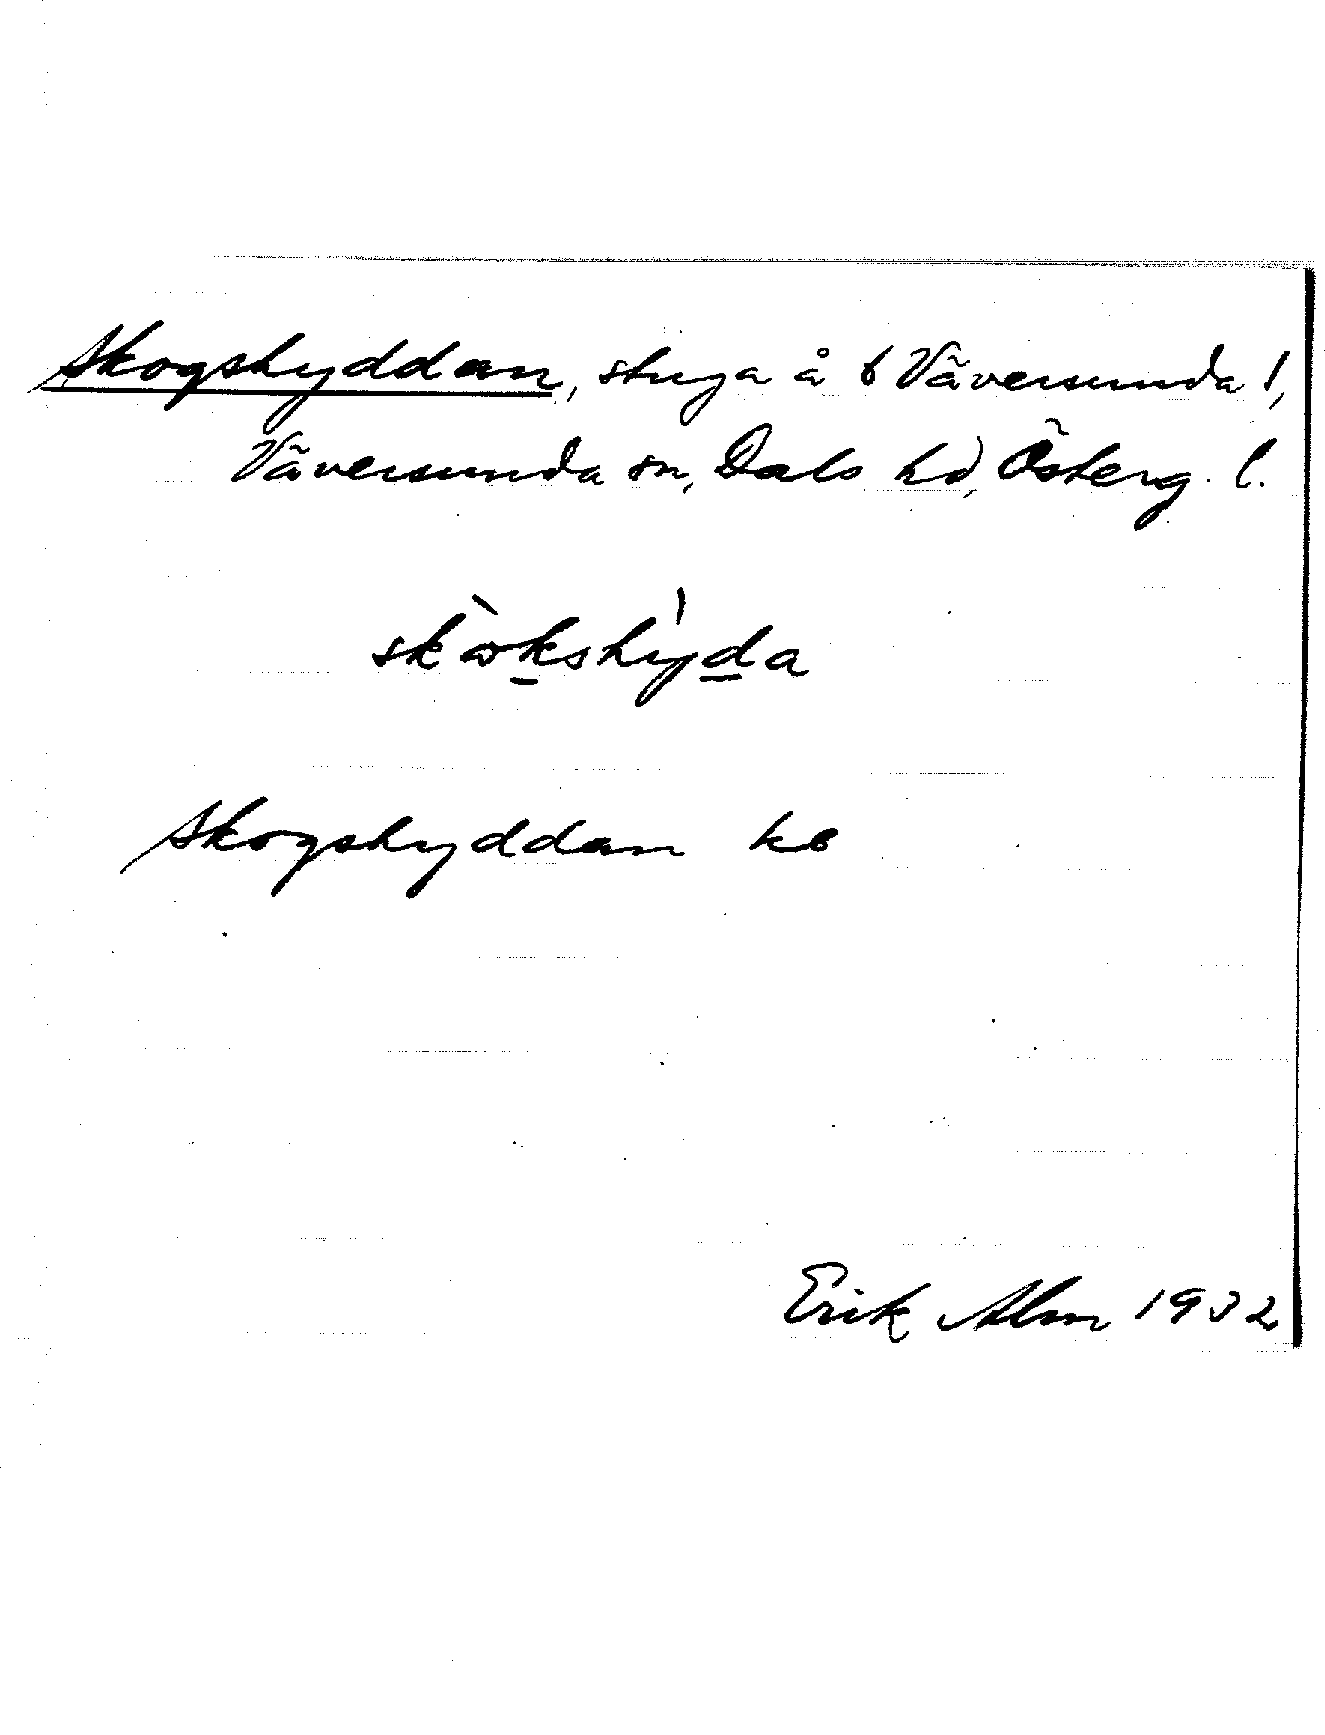 Skogshyddan, stuga å 6 Väversunda 1,
Väversunda sn, Dals hd, Österg. l.
skò̀kshy̍da
Skogshyddan kb
Erik Alm 1932